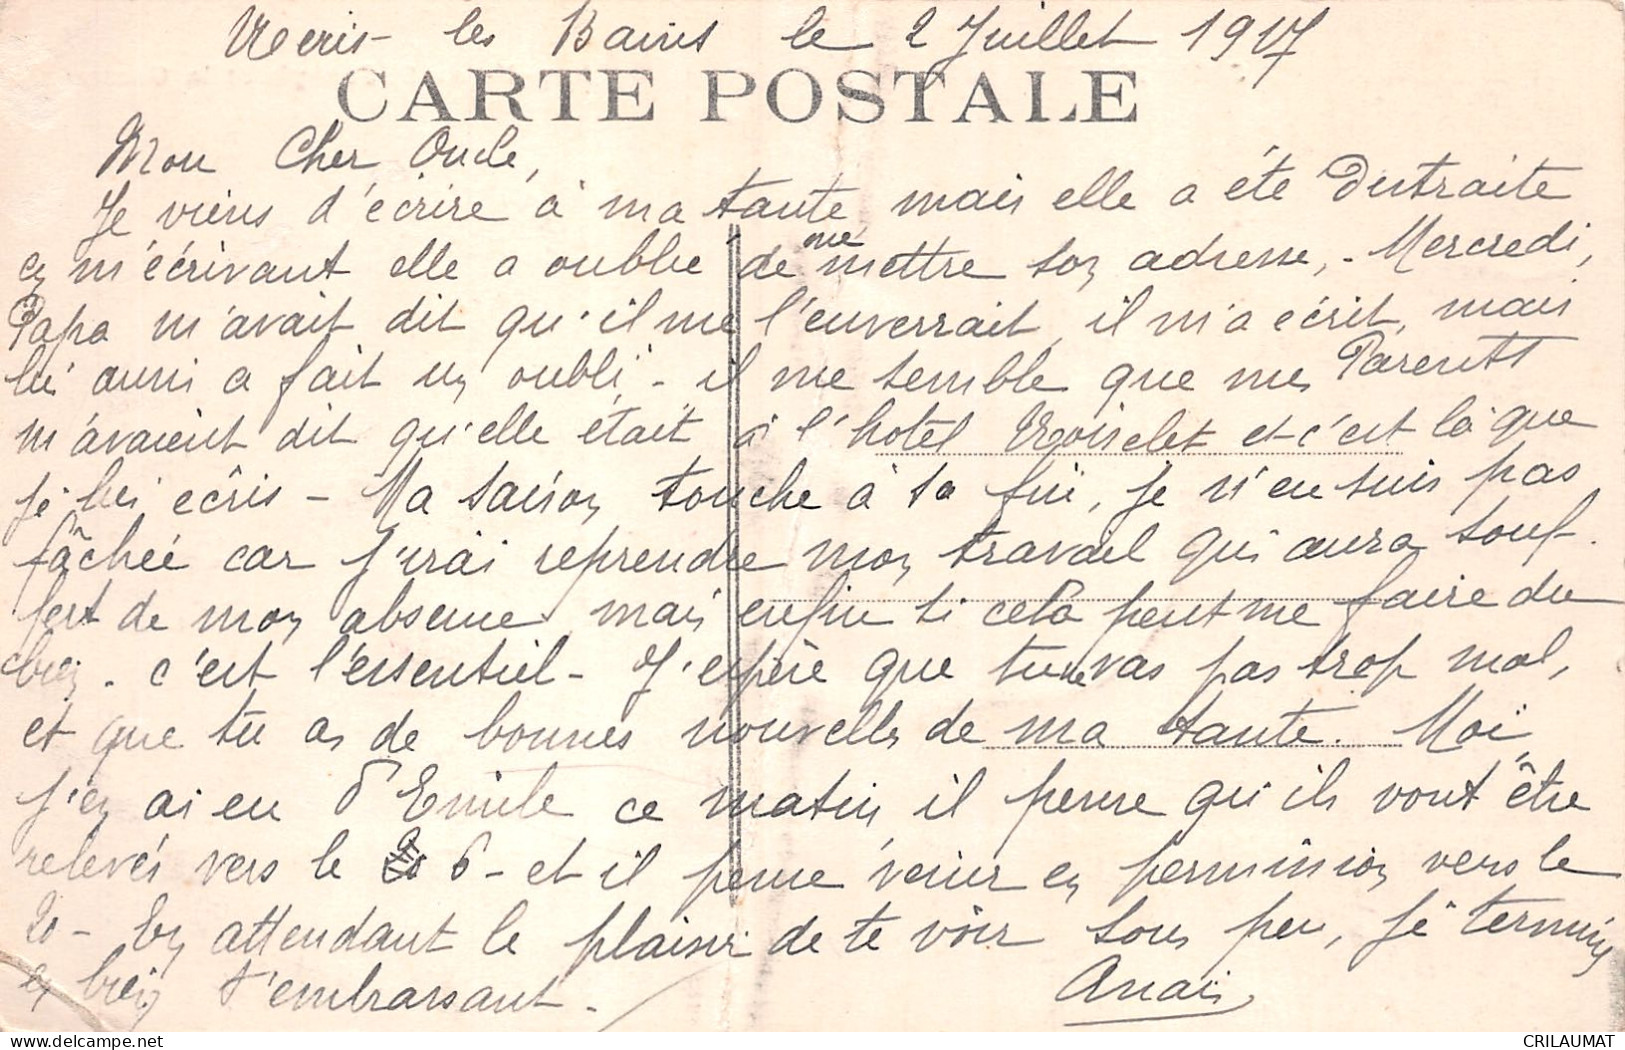 Neris les Bains le 2 Juillet 1917
CARTE POSTALE
Mon Cher Oncle,
Je viens d'écrire à ma tante mais elle a été distraite
en m'écrivant elle a oublié de me mettre son adresse, - Mercredi,
Papa m'avait dit qu'il me l'enverrait, il m'a écrit, mais
lui aussi a fait un oubli, - il me semble que mes Parents
m'avaient dit qu'elle était à l'hotel et c'est là que
je lui écris - Ma saison touche à sa fin, je n'en suis pas
fâchée car j'irai reprendre mon travail qui aura souf-
fert de mon absence mais enfin si cela peut me faire du
bien - c'est l'essentiel - J'espère que tu ne vas pas trop mal,
et que tu as de bonnes nouvelles de ma tante. Moi
j'en ai eu d'Emile ce matin, il pense qu'ils vont être
relevés vers le 6 - et il pense venir en permission vers le
20 - En attendant le plaisir de te voir sous peu, je termine
en bien t'embrassant -
Anaïs
CRILAUMAT